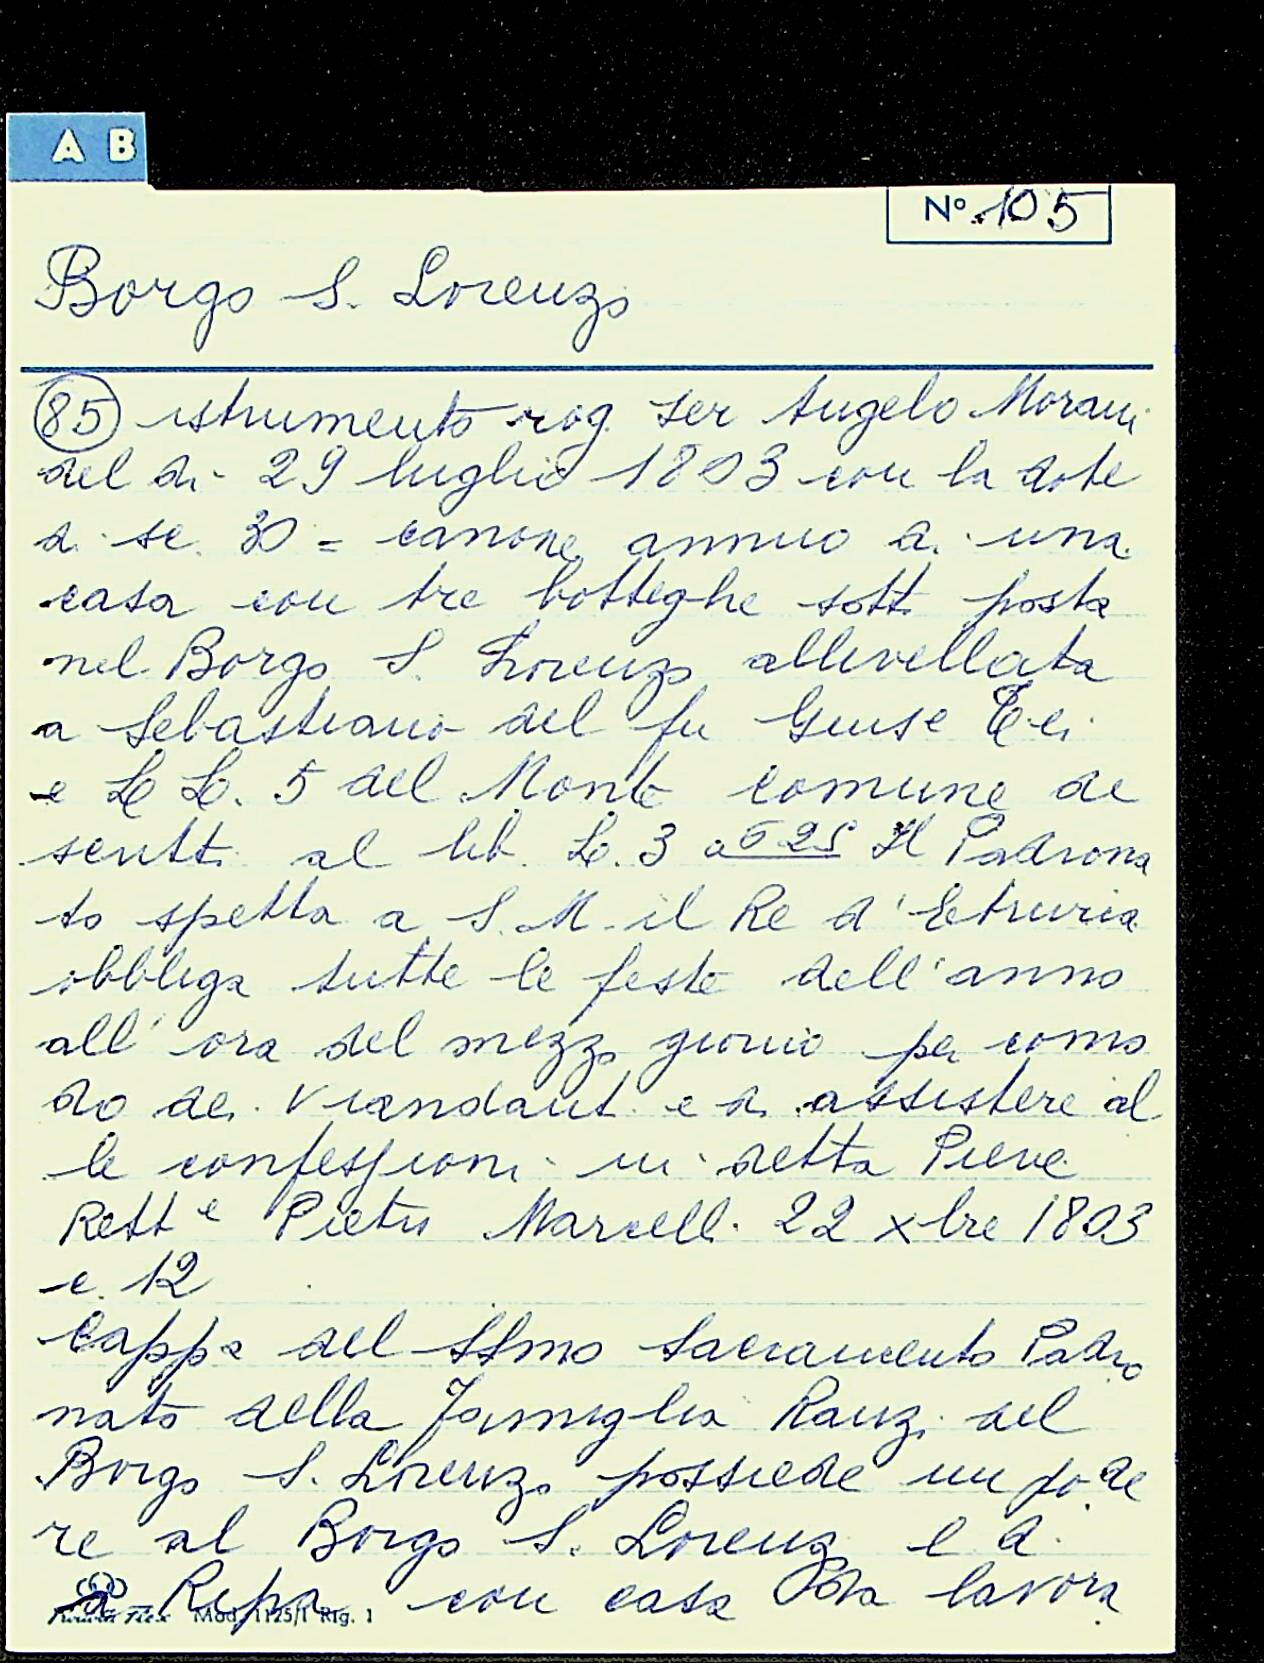 A B
Nº 105
Borgo S. Lorenzo
85 istrumento rog. ser Angelo Morani
del di 29 luglio 1803 con la dote
di sc. 30 = canone annuo di una
casa con tre botteghe sott. posta
nel Borgo S. Lorenzo allivellata
a Sebastiano del fu Giuse
e L L. 5 del Monte comune de
scritt. al lib. L. 3 a 525 Il Padrona
to spetta a S. M. il Re d'Etruria
obbliga tutte le feste dell'anno
all'ora del mezzo giorno per como
do dei viandanti e di assistere al
le confessioni in detta Pieve
Rett e Pietro Marcelli 22 xbre 1803
c. 12
Cappa del SSmo Sacramento Padro
nato della Famiglia Ranzi del
Borgo S. Lorenzo possiede un pode
re al Borgo S. Lorenzo e di
a Ripa con casa da lavora
Mod. 1125/1 Rig. 1